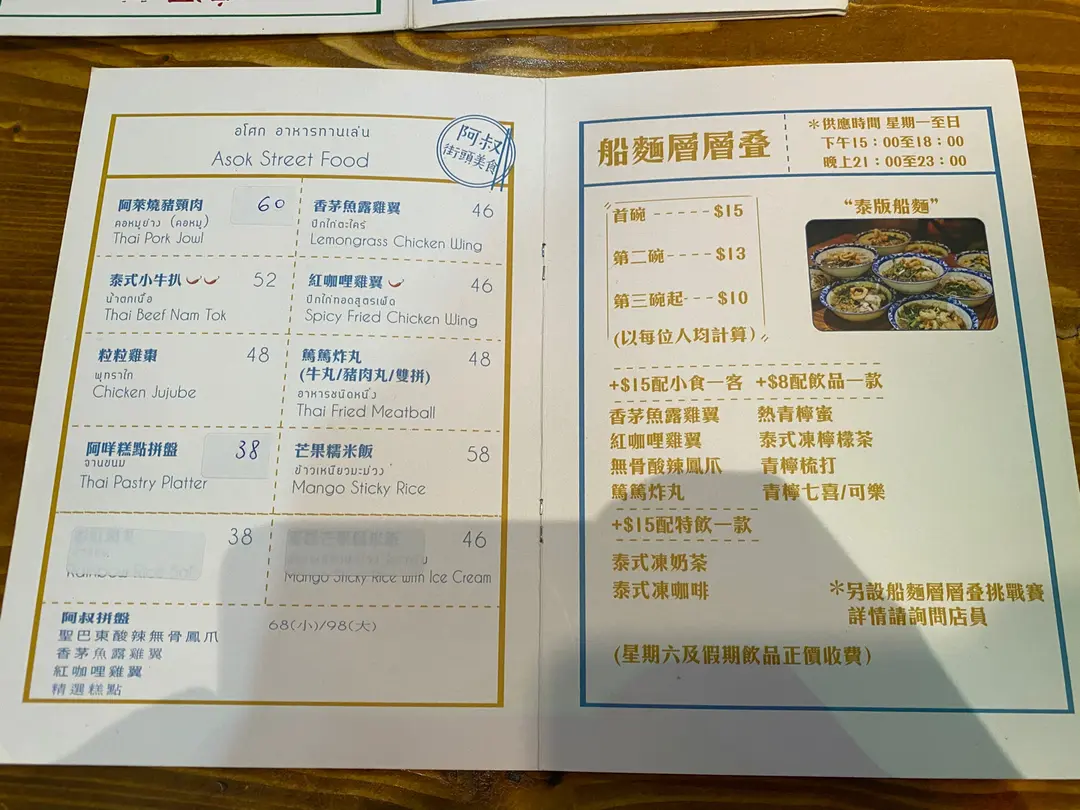 อโศก อาหารทานเล่น
Asok Street Food
阿叔
街頭美食
阿萊燒豬頸肉 60
คอหมูย่าง (คอหมู)
Thai Pork Jowl
香茅魚露雞翼 46
ปีกไก่ตะไคร้
Lemongrass Chicken Wing
泰式小牛扒 52
น้ำตกเนื้อ
Thai Beef Nam Tok
紅咖哩雞翼 46
ปีกไก่ทอดสูตรเผ็ด
Spicy Fried Chicken Wing
粒粒雞棗 48
พุทราไก่
Chicken Jujube
篤篤炸丸 48
(牛丸/豬肉丸/雙拼)
อาหารชนิดหนึ่ง
Thai Fried Meatball
阿咩糕點拼盤 38
จานขนม
Thai Pastry Platter
芒果糯米飯 58
ข้าวเหนียวมะม่วง
Mango Sticky Rice
38
46
Mango Sticky Rice with Ice Cream
阿叔拼盤 68(小)/98(大)
聖巴東酸辣無骨鳳爪
香茅魚露雞翼
紅咖哩雞翼
精選糕點
船麵層層叠
*供應時間 星期一至日
下午15：00至18：00
晚上21：00至23：00
首碗 ----- $15
第二碗---- $13
第三碗起--- $10
(以每位人均計算)
“泰版船麵”
+$15配小食一客 +$8配飲品一款
香茅魚露雞翼 熱青檸蜜
紅咖哩雞翼 泰式凍檸檬茶
無骨酸辣鳳爪 青檸梳打
篤篤炸丸 青檸七喜/可樂
+$15配特飲一款
泰式凍奶茶
泰式凍咖啡
*另設船麵層層叠挑戰賽
詳情請詢問店員
(星期六及假期飲品正價收費)